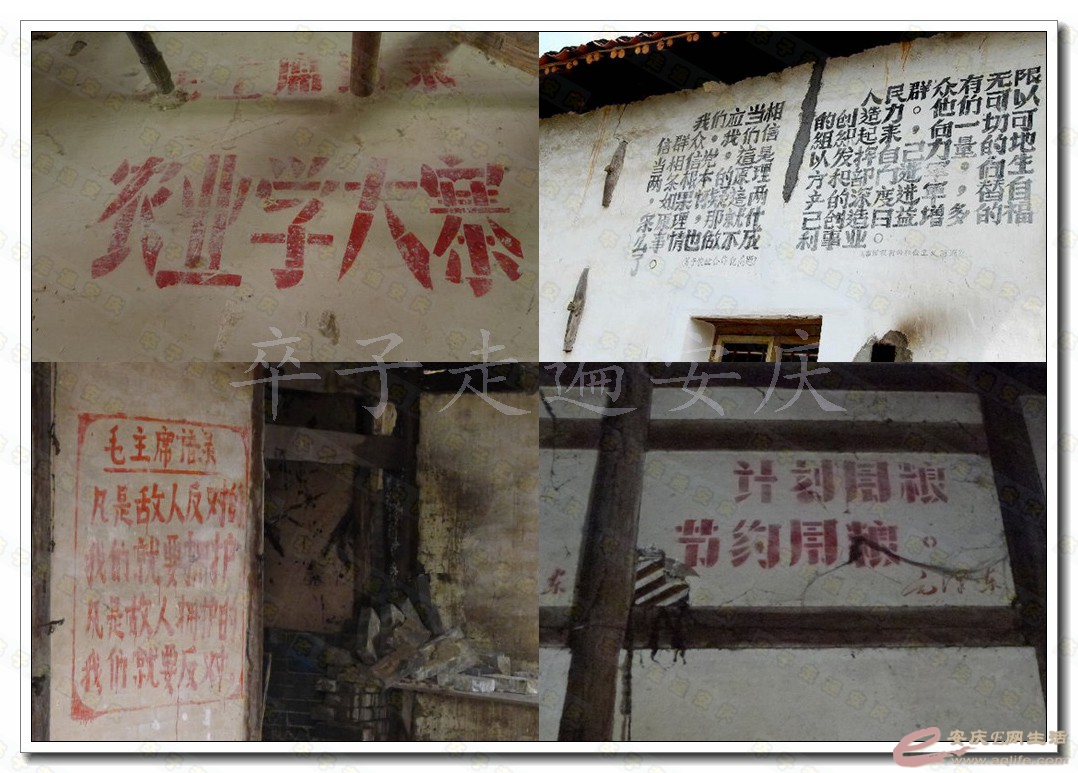 主席
农业学大寨
我们应当相
信群众,我们应
当相信党,这是
两条根本的原理
。如果怀疑这两
条原理,那就什
么事情也做不成
了。
人民群众有无限
的创造力。他们可以
组织起来,向一切可
以发挥自己力量的地
方和部门进军,向生
产的深度进军,替自
己创造日益增多的福
利事业。
毛主席语录
凡是敌人反对的
我们就要拥护
凡是敌人拥护的
我们就要反对。
计划用粮
节约用粮。
毛泽东
东
卒子走遍安庆
安庆E网生活
www.aqlife.com